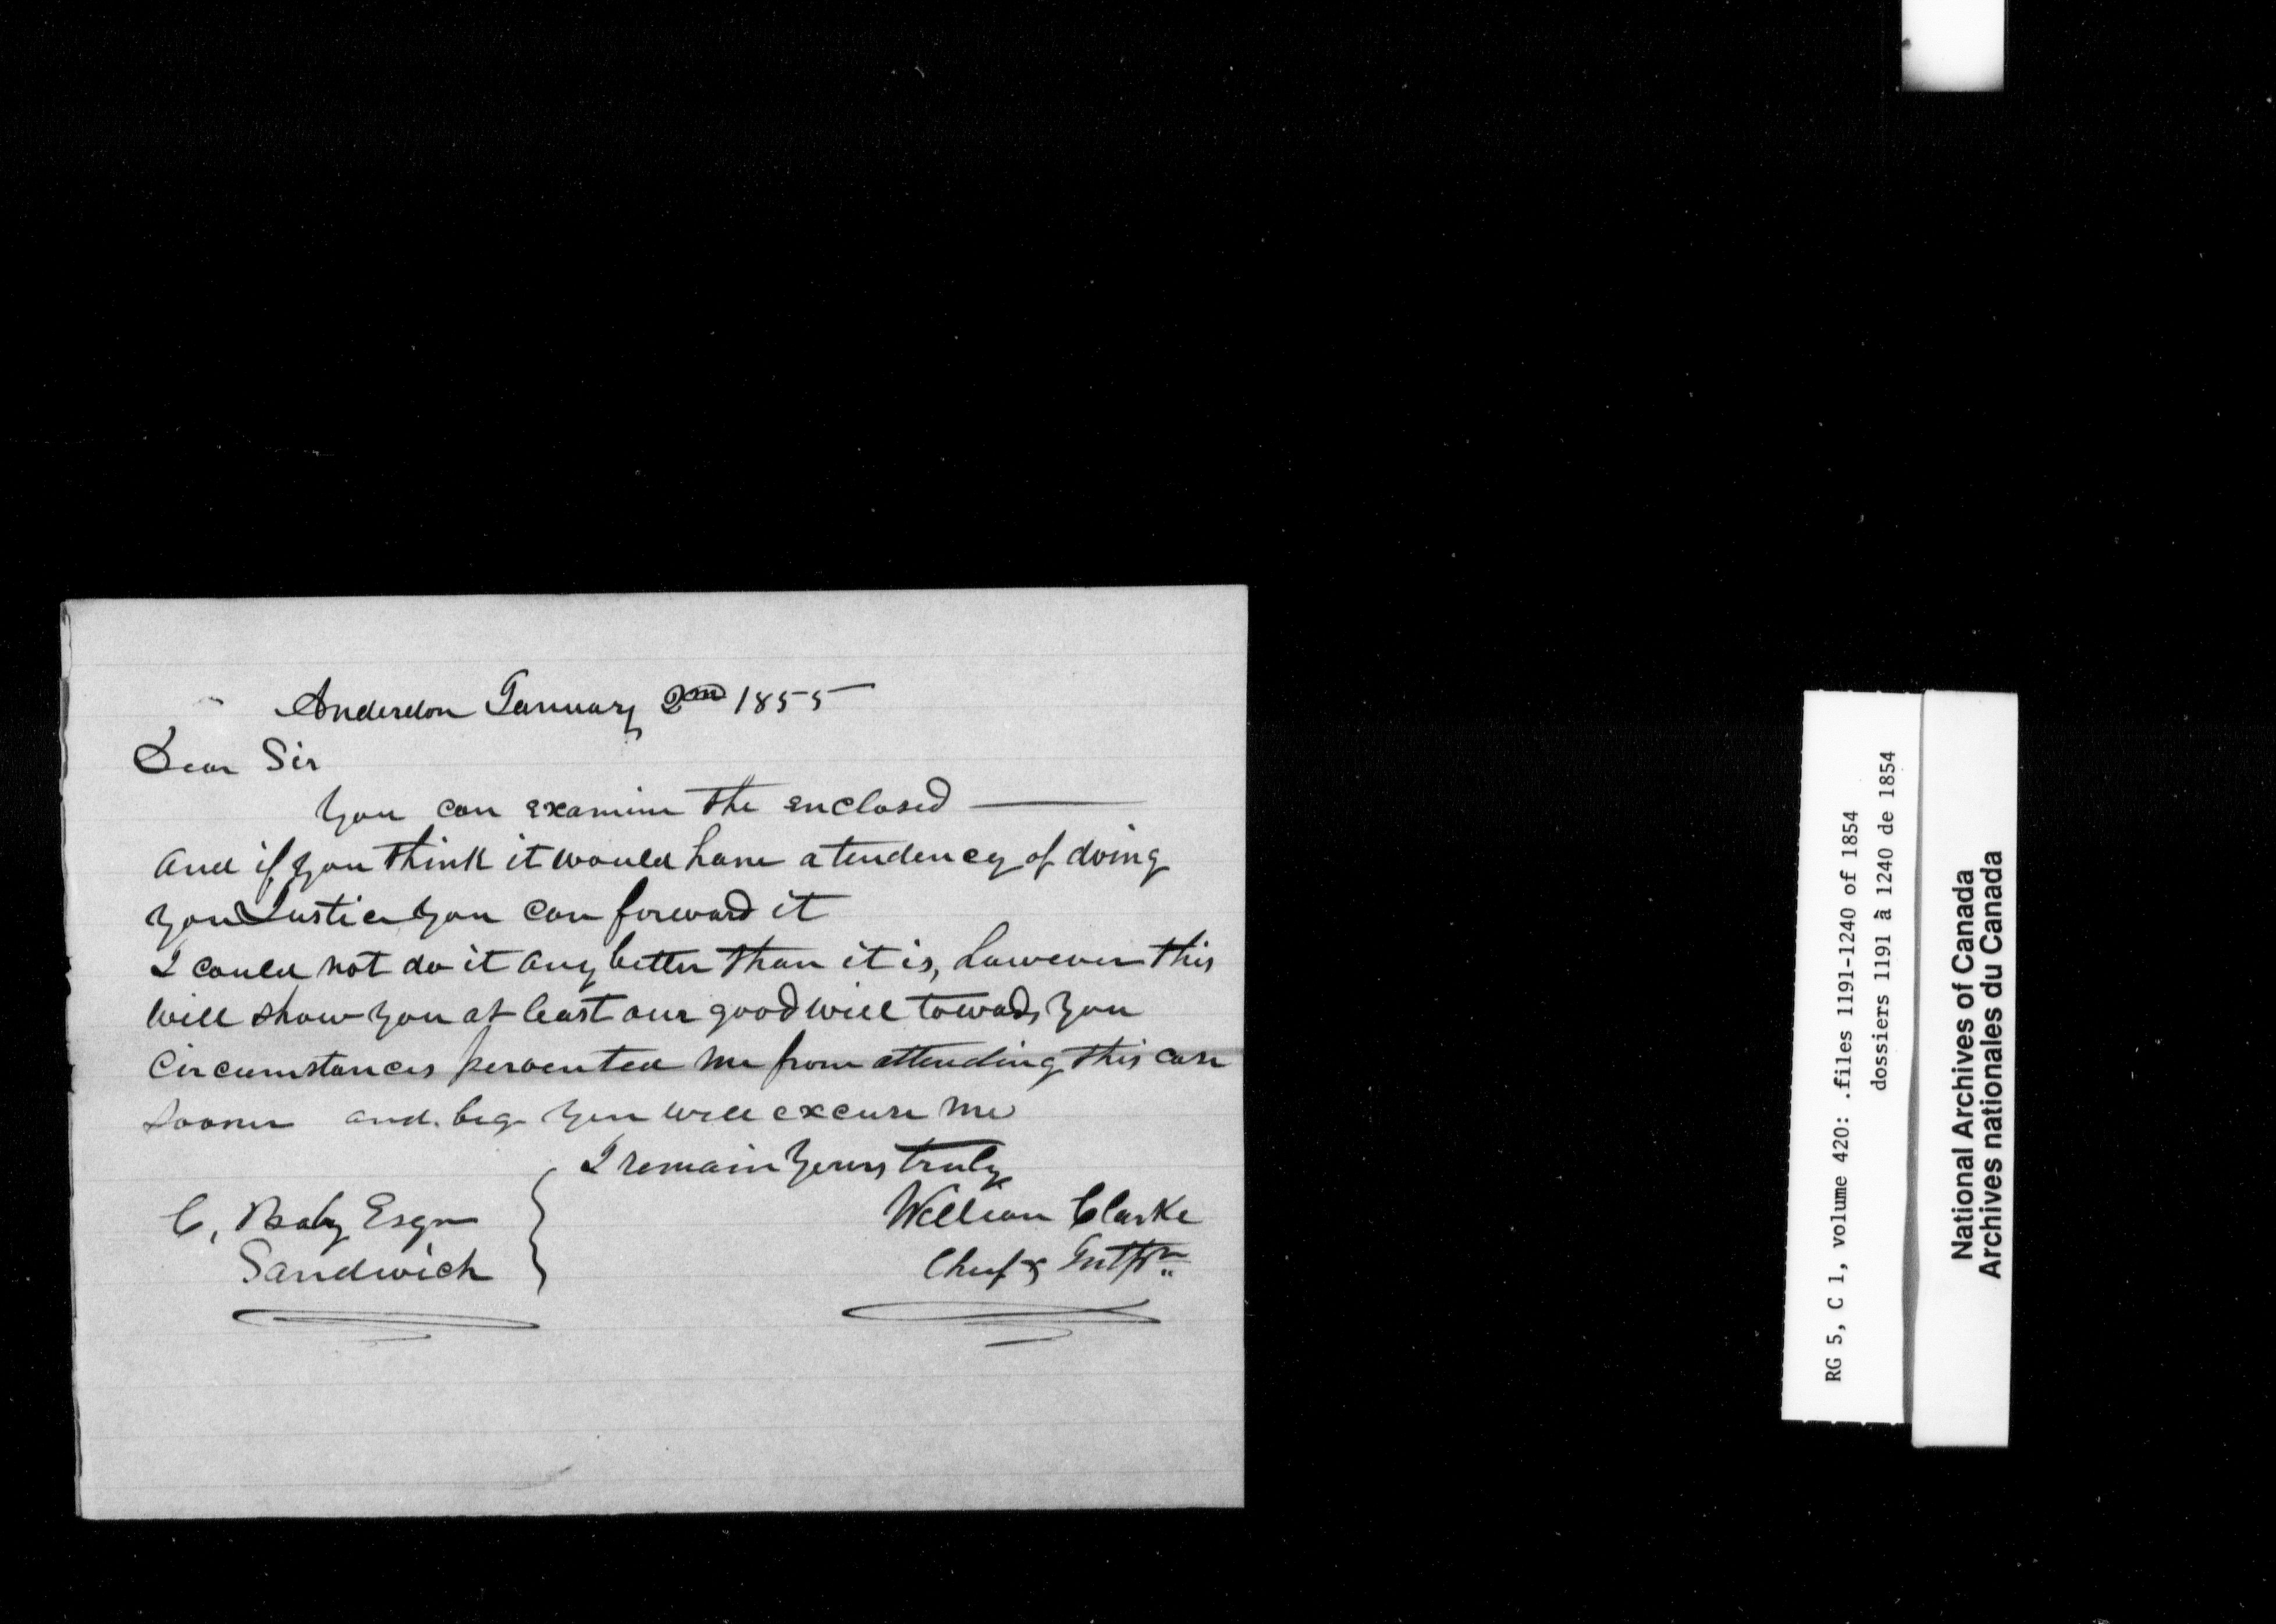 Anderdon January 2nd 1855
Dear Sir
You can examine the enclosed —
and if you think it would have a tendency of doing
you Justice you can forward it
I could not do it any better than it is, however this
will show you at least our good will towads you
Circumstances perventea me from attending this case
sooner and. beg you will excuse me
I remain Yours truly
C, Baby Esqr
Sandwich
William Clarke
Chief & Intpr
RG 5, C 1, volume 420: .files 1191-1240 of 1854
dossiers 1191 à 1240 de 1854
National Archives of Canada
Archives nationales du Canada